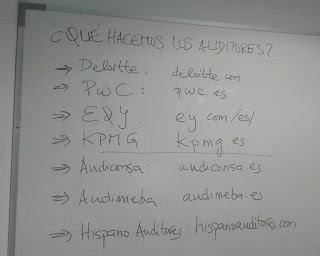 ¿QUÉ HACEMOS LOS AUDITORES?
⇒ Deloitte: deloitte.com
⇒ PwC: pwc.es
⇒ E&Y: ey.com/es/
⇒ KPMG: kpmg.es
⇒ Audiconsa: audiconsa.es
⇒ Audimeba: audimeba.es
⇒ Hispano Auditores: hispanoauditores.com